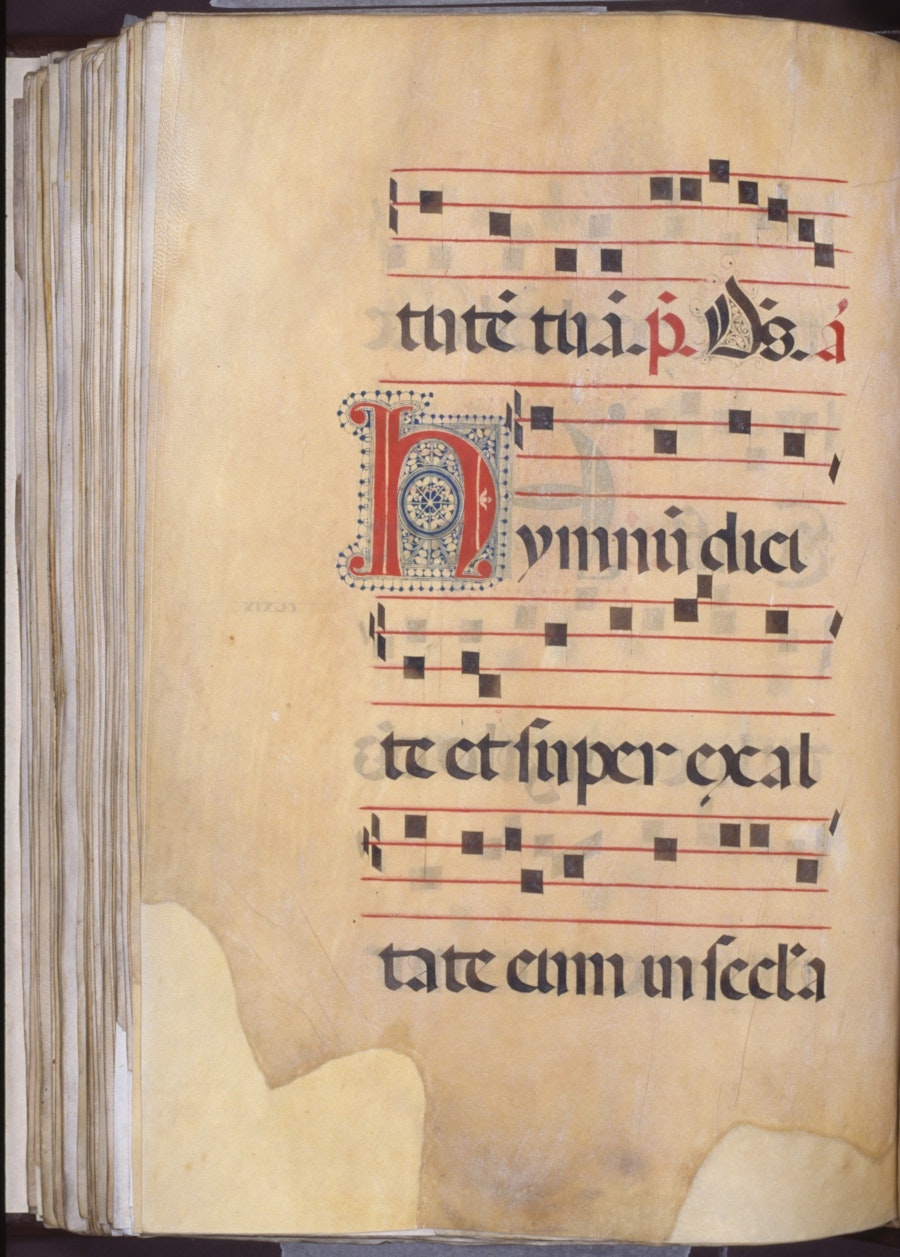 tutē tuā. p̄. Ds. ā
hymnū dici
te et super exal
tate eum in secl'a